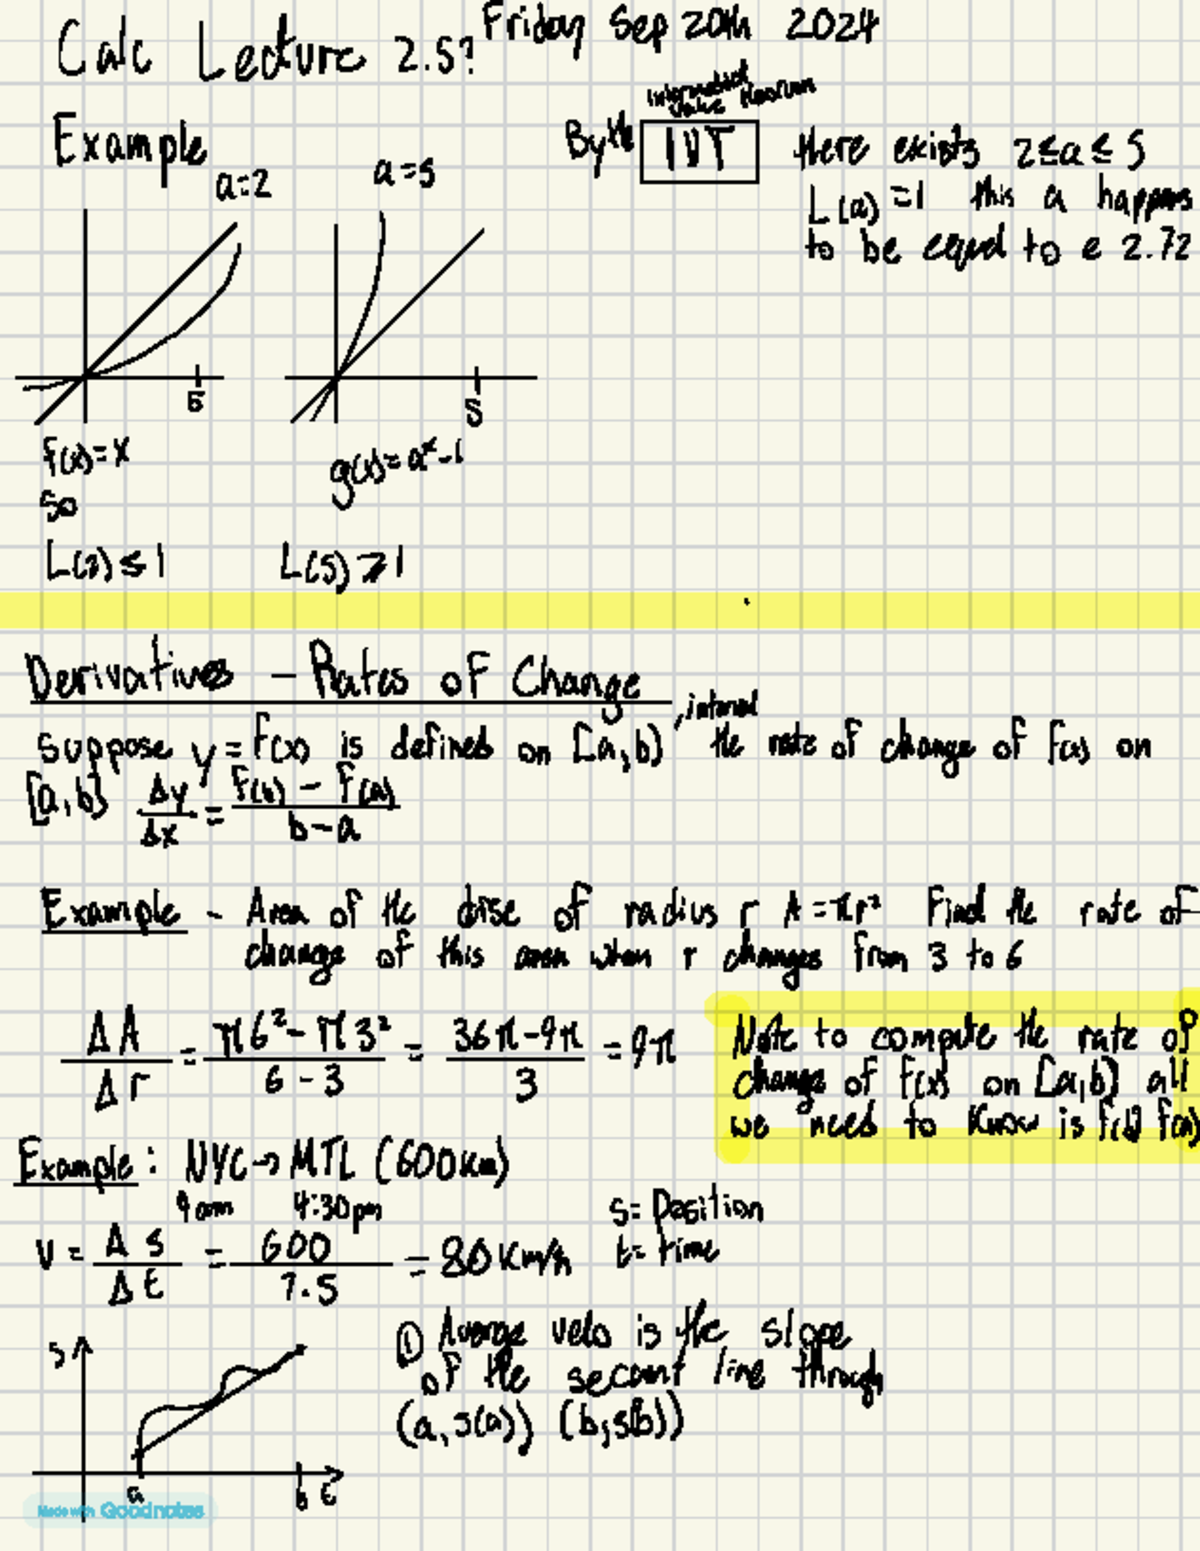 Calc Lecture 2.5? Friday Sep 20th 2024
Example
a=2
a=5
5
5
f(x)=x
g(x)=a^x-1
so
L(2)≤1 L(5)≥1
Value theorem
By the IVT there exists 2≤a≤5
L(a)=1 this a happens
to be equal to e 2.72
Derivatives - Rates of Change
, interval
Suppose y=f(x) is defined on [a,b] the rate of change of f(x) on
[a,b] Δy/Δx = f(b) - f(a) / b-a
Example - Area of the disc of radius r A=πr² Find the rate of
change of this area when r changes from 3 to 6
ΔA/Δr = π6²-π3² / 6-3 = 36π-9π / 3 = 9π
Note to compute the rate of
change of f(x) on [a,b] all
we need to know is f(b) f(a)
Example: NYC→MTL (600km)
9am 4:30pm
V = Δs/Δt = 600/7.5 = 80 km/h
s= Position
t= time
s
a
b t
① Average velo is the slope
of the secant line through
(a,s(a)) (b,s(b))
Made with Goodnotes